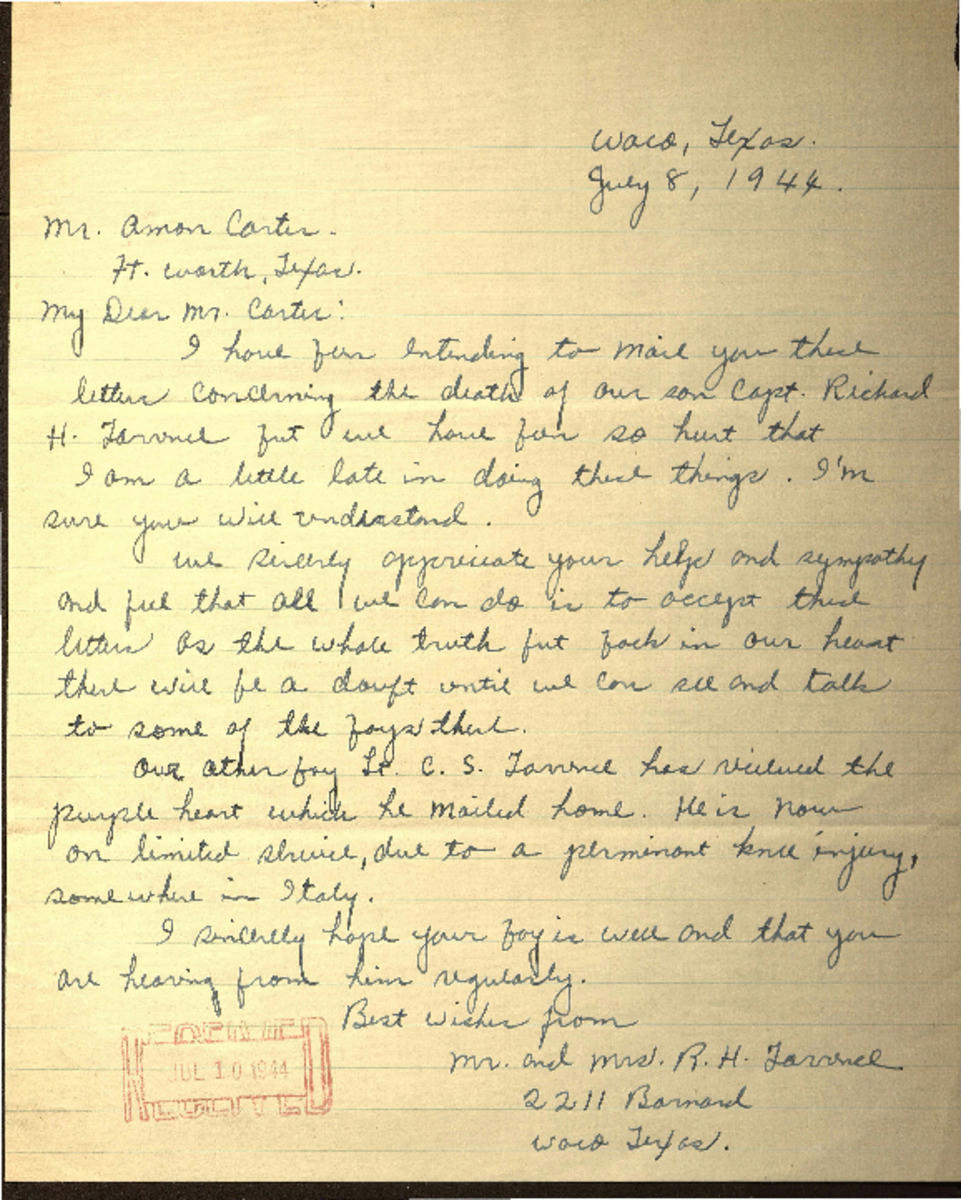 Waco, Texas.
July 8, 1944.
Mr. Amon Carter.
Ft. Worth, Texas.
My Dear Mr. Carter:
I have been intending to mail you these
letters concerning the death of our son Capt. Richard
H. Torrence but we have been so hurt that
I am a little late in doing these things. I'm
sure you will understand.
We sincerly appreciate your help and sympathy
and feel that all we can do is to accept these
letters as the whole truth but back in our heart
there will be a doubt until we can see and talk
to some of the boys there.
Our other boy Lt. C. S. Torrence has recieved the
purple heart which he mailed home. He is now
on limited service, due to a perminant knee injury,
somewhere in Italy.
I sincerely hope your boy is well and that you
are hearing from him regularly.
Best wishes from
Mr. and Mrs. R. H. Torrence
2211 Barnard
Waco Texas.
RECEIVED
JUL 10 1944
RECEIVED